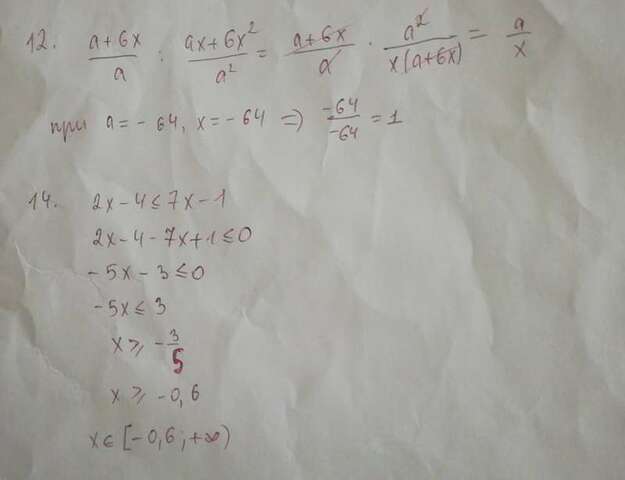 12. (a+6x)/a : (ax+6x²)/a² = (a+6x)/a · a²/(x(a+6x)) = a/x
при a = -64, x = -64 ⇒ -64/-64 = 1
14. 2x-4 ≤ 7x-1
2x-4-7x+1 ≤ 0
-5x-3 ≤ 0
-5x ≤ 3
x ⩾ -3/5
x ⩾ -0,6
x ∈ [-0,6; +∞)